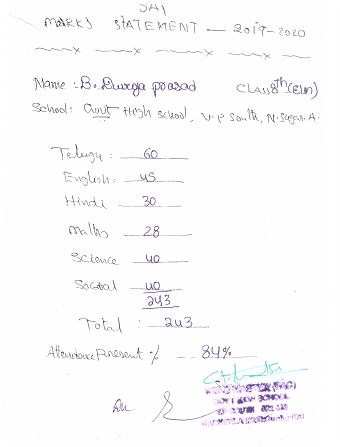 SAI
MARKS STATEMENT - 2019-2020
Name : B. Durga prasad CLASS 8th (E/M)
School: Govt High school, V.P South, N. Sagar. A.
Telugu : 60
English : 45
Hindi : 30
Maths 28
Science 40
Social 40
243
Total : 243
Attendance Present % 84%
HEADMASTER (FAC)
GOVT HIGH SCHOOL